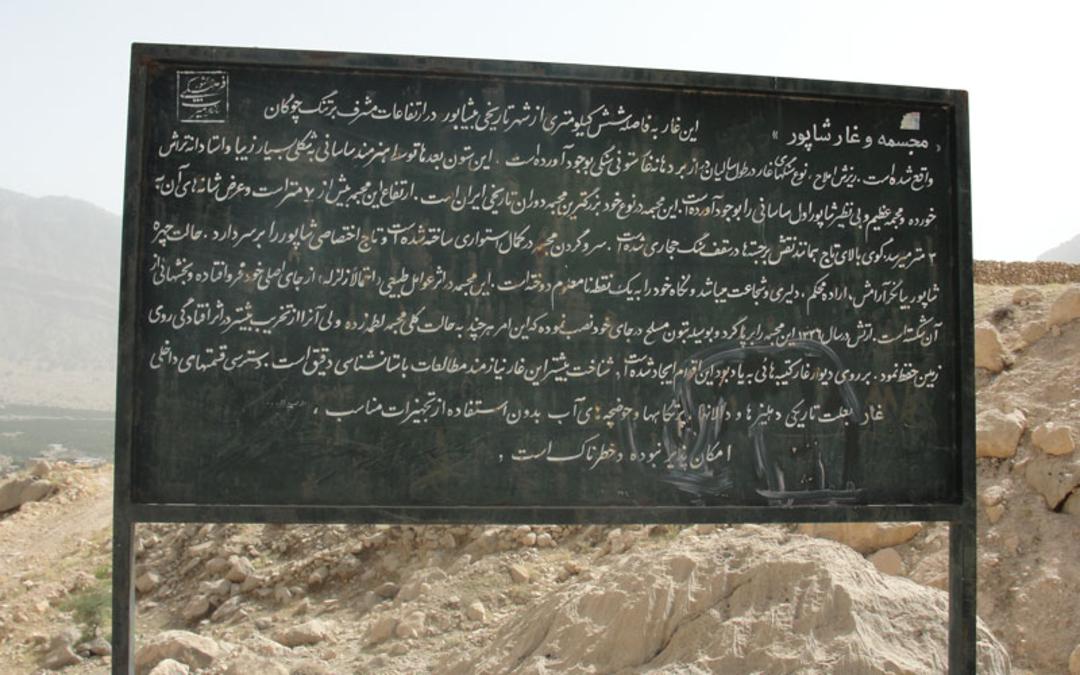 « مجسمه و غار شاپور » این غار به فاصله شش کیلومتری از شهر تاریخی بیشاپور در ارتفاعات مشرف بر تنگ چوگان
واقع شده است. بر اثر ریزش املاح، نوع سنگهای غار در طول سالیان دراز بر دهانه غار ستونی سنگی بوجود آورده است. این ستون بعدها توسط هنرمند ساسانی به شکلی بسیار زیبا و استادانه تراش
خورده و مجسمه عظیم و بی نظیر شاپور اول ساسانی را بوجود آورده است. این مجسمه در نوع خود بزرگترین مجسمه دوران تاریخی ایران است. ارتفاع این مجسمه بیش از ۷ متر است و عرض شانه های آن به
۳ متر میرسد. گوی بالای تاج بمانند نقش برجسته در سقف سنگ حجاری شده است. سر و گردن مجسمه در کمال استواری ساخته شده است و تاج اختصاصی شاپور را بر سر دارد. حالت چهره
شاپور بیانگر آرامش، اراده محکم، دلیری و شجاعت میباشد و نگاه خود را به یک نقطه نامعلوم دوخته است. این مجسمه در اثر عوامل طبیعی (احتمالاً زلزله) از جای اصلی خود فرو افتاده و بخشهائی از
آن شکسته است. ارتش در سال ۱۳۳۶ این مجسمه را بر پا کرد و بوسیله بتون مسلح در جای خود نصب نموده که این امر هر چند به حالت کلی مجسمه لطمه زده ولی آنرا از تخریب بیشتر در اثر افتادگی روی
زمین حفظ نمود. بر روی دیوار غار کتیبه هائی به یادبود این اقدام ایجاد شده است. شناخت بیشتر این غار نیازمند مطالعات باستانشناسی دقیق است. دسترسی قسمتهای داخلی
غار بعلت تاریکی دهلیزها و دالانها، پرتگاهها و حوضچه های آب بدون استفاده از تجهیزات مناسب،
امکان پذیر نبوده و خطرناک است.